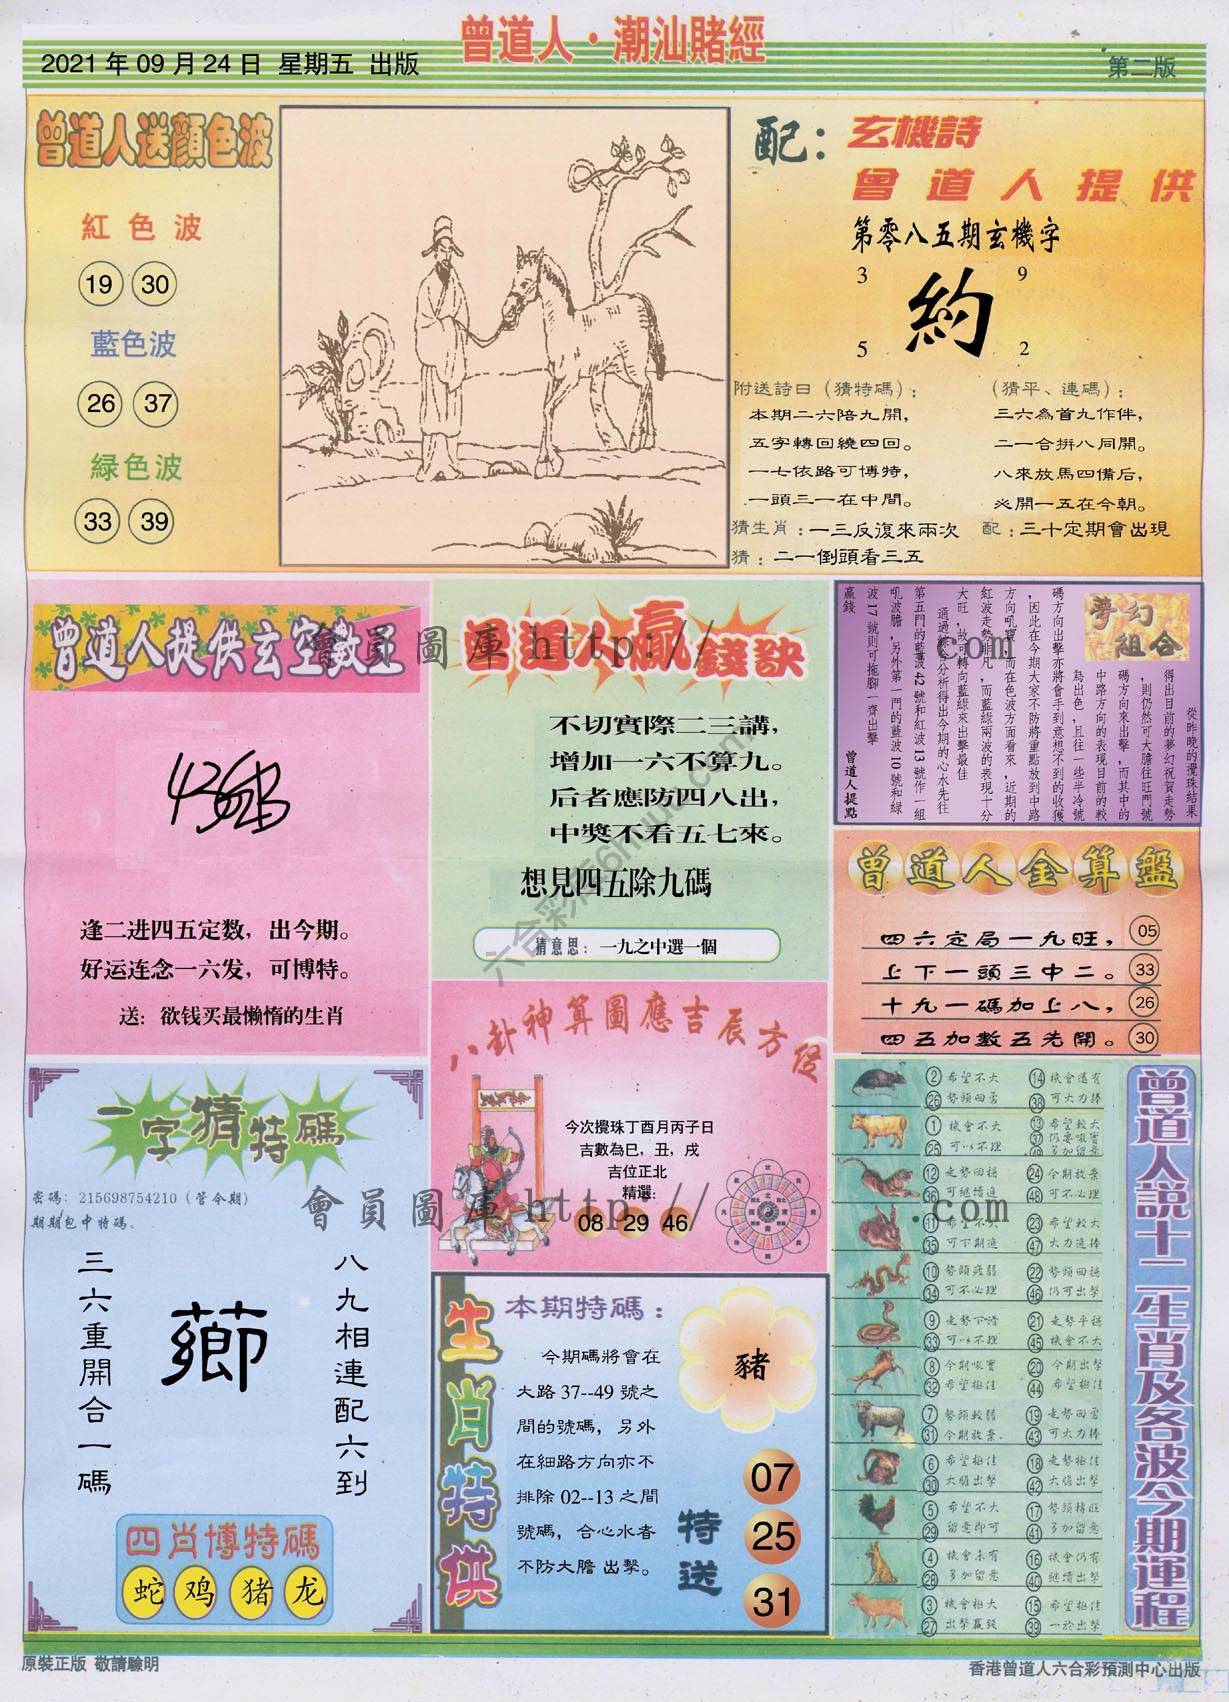 曾道人·潮汕賭經
2021年09月24日 星期五 出版
第二版
曾道人送顔色波
紅色波
19 30
藍色波
26 37
緑色波
33 39
配：玄機詩
曾道人提供
第零八五期玄機字
3 9
約
5 2
附送詩日（猜特碼）：
本期二六陪九開，
五字轉回繞四回。
一七依路可博特，
一頭三一在中間。
（猜平、連碼）：
三六為首九作伴，
二一合拼八同開。
八來放馬四備后，
必開一五在今朝。
猜生肖：一三反復來兩次
配：三十定期會出現
猜：二一倒頭看三五
曾道人提供玄空數王
逢二进四五定数，出今期。
好运连念一六发，可博特。
送：欲钱买最懒惰的生肖
曾道人贏錢訣
不切實際二三講，
增加一六不算九。
后者應防四八出，
中獎不看五七來。
想見四五除九碼
猜意思：一九之中選一個
夢幻組合
從昨晚的攪珠結果
得出目前的夢幻祝賀走勢
，則仍然可大膽往旺門號
碼方向來出擊，而其中的
中路方向的表現目前的較
為出色，且往一些半冷號
碼方向出擊亦將會手到意想不到的收獲
，因此在今期大家不防將重點放到中路
方向吼寶，而在色波方面看來，近期的
紅波走勢非凡，而藍綠兩波的表現十分
大旺，故可轉向藍綠來出擊最佳
第五門的藍波42號和紅波13號作一組
吼波膽，另外第一門的藍波10號和綠
波17號則可拖腳一齊出擊
贏錢
曾道人提點
曾道人金算盤
四六定局一九旺，05
上下一頭三中二。33
十九一碼加上八，26
四五加數五先開。30
八卦神算圖應吉辰方位
今次攪珠丁酉月丙子日
吉數為巳，丑，戌
吉位正北
精選：
08 29 46
一字猜特碼
密碼：215698754210（管今期）
期期包中特碼。
三六重開合一碼
薌
八九相連配六到
四肖博特碼
蛇 鸡 猪 龙
生肖特供
本期特碼：
今期碼將會在
大路37--49號之
間的號碼，另外
在細路方向亦不
排除02--13之間
號碼，合心水者
不防大膽出擊。
豬
特送
07
25
31
曾道人説十二生肖及各波今期運程
② 希望不大 ⑭ 機會還有
㉖ 勢頭回勇 ㊳ 可大力捧
① 機會不大 ⑬ 希望較大
㉕ 可以不理
⑫ 走勢回穩 ㉔ 今期放棄
㊱ 可繼續追 ㊽ 可不必理
㉓ 希望較大
㉟ 可下期追 ㊼ 大力追捧
⑩ 勢頭疲弱 ㉒ 勢頭回穩
㉞ 可不必理 ㊻ 仍可出擊
⑨ 走勢下滑 ㉑ 走勢平穩
㉝ 可以不理 ㊺ 機會不大
⑧ 今期吼寶 ⑳ 今期出擊
㉜ 希望極佳 ㊹ 希望極佳
⑦ 勢頭較弱 ⑲ 走勢回勇
㉛ 今期放棄 ㊸ 可大力捧
⑥ 希望極佳 ⑱ 走勢極佳
㉚ 大膽出擊 ㊷ 大膽出擊
⑤ 希望不大 ⑰ 勢頭轉旺
㉙ 留意即可 ㊶ 多加留意
④ 機會未有 ⑯ 機會仍有
㉘ 多加留意 ㊵ 繼續出擊
③ 機會極大 ⑮ 希望極佳
㉗ 出擊贏錢 ㊴ 一於出擊
會員圖庫 http://
.com
原裝正版 敬請驗明
香港曾道人六合彩預測中心出版